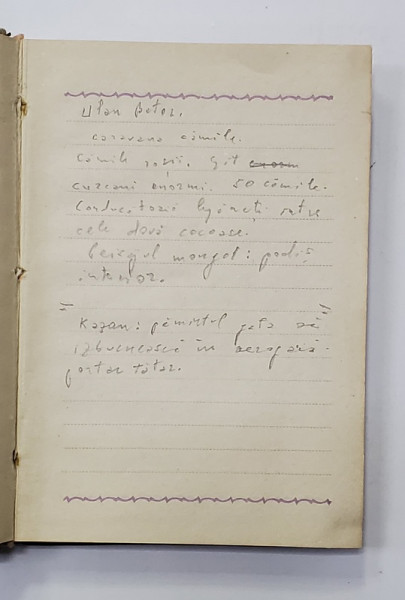 Ulan Bator.
caravana cămile.
Cămile roşii. Gât
curcani enormi. 50 cămile.
Conducătorii legănaţi între
cele două cocoaşe.
mongol: podiş
interior.
Kazan: pământul gata să
izbucnească în aerogară.
portar tătar.